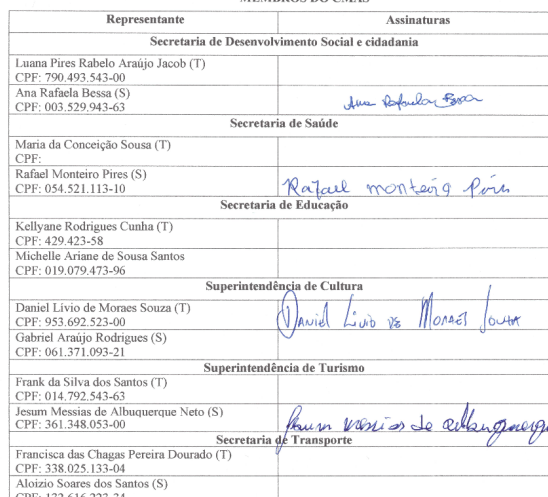 MEMBROS DO CMAS
Representante Assinaturas
Secretaria de Desenvolvimento Social e cidadania
Luana Pires Rabelo Araújo Jacob (T)
CPF: 790.493.543-00
Ana Rafaela Bessa (S)
CPF: 003.529.943-63
Ana Rafaela Bessa
Secretaria de Saúde
Maria da Conceição Sousa (T)
CPF:
Rafael Monteiro Pires (S)
CPF: 054.521.113-10
Rafael monteiro Pires
Secretaria de Educação
Kellyane Rodrigues Cunha (T)
CPF: 429.423-58
Michelle Ariane de Sousa Santos
CPF: 019.079.473-96
Superintendência de Cultura
Daniel Lívio de Moraes Souza (T)
CPF: 953.692.523-00
DANIEL LIVIO DE MORAES SOUZA
Gabriel Araújo Rodrigues (S)
CPF: 061.371.093-21
Superintendência de Turismo
Frank da Silva dos Santos (T)
CPF: 014.792.543-63
Jesum Messias de Albuquerque Neto (S)
CPF: 361.348.053-00
Jesum messias de albuquerque
Secretaria de Transporte
Francisca das Chagas Pereira Dourado (T)
CPF: 338.025.133-04
Aloizio Soares dos Santos (S)
CPF: 132.616.223-34